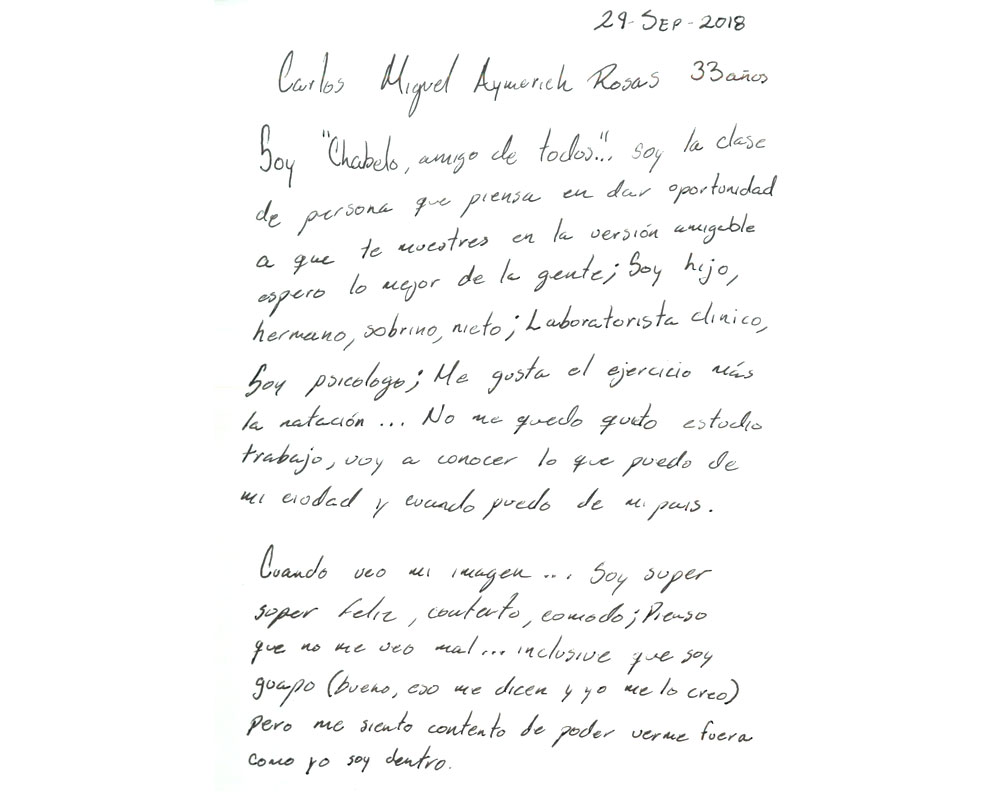 29-SEP-2018
Carlos Miguel Aymerich Rosas 33 años
Soy "Chabelo, amigo de todos"... soy la clase
de persona que piensa en dar oportunidad
a que te muestres en la versión amigable
espero lo mejor de la gente; Soy hijo,
hermano, sobrino, nieto; Laboratorista clinico,
Soy psicologo; Me gusta el ejercicio más
la natación... No me quedo quieto estudio
trabajo, voy a conocer lo que puedo de
mi ciudad y cuando puedo de mi pais.
Cuando veo mi imagen... Soy super
super feliz, contento, comodo; Pienso
que no me veo mal... inclusive que soy
guapo (bueno, eso me dicen y yo me lo creo)
pero me siento contento de poder verme fuera
como yo soy dentro.